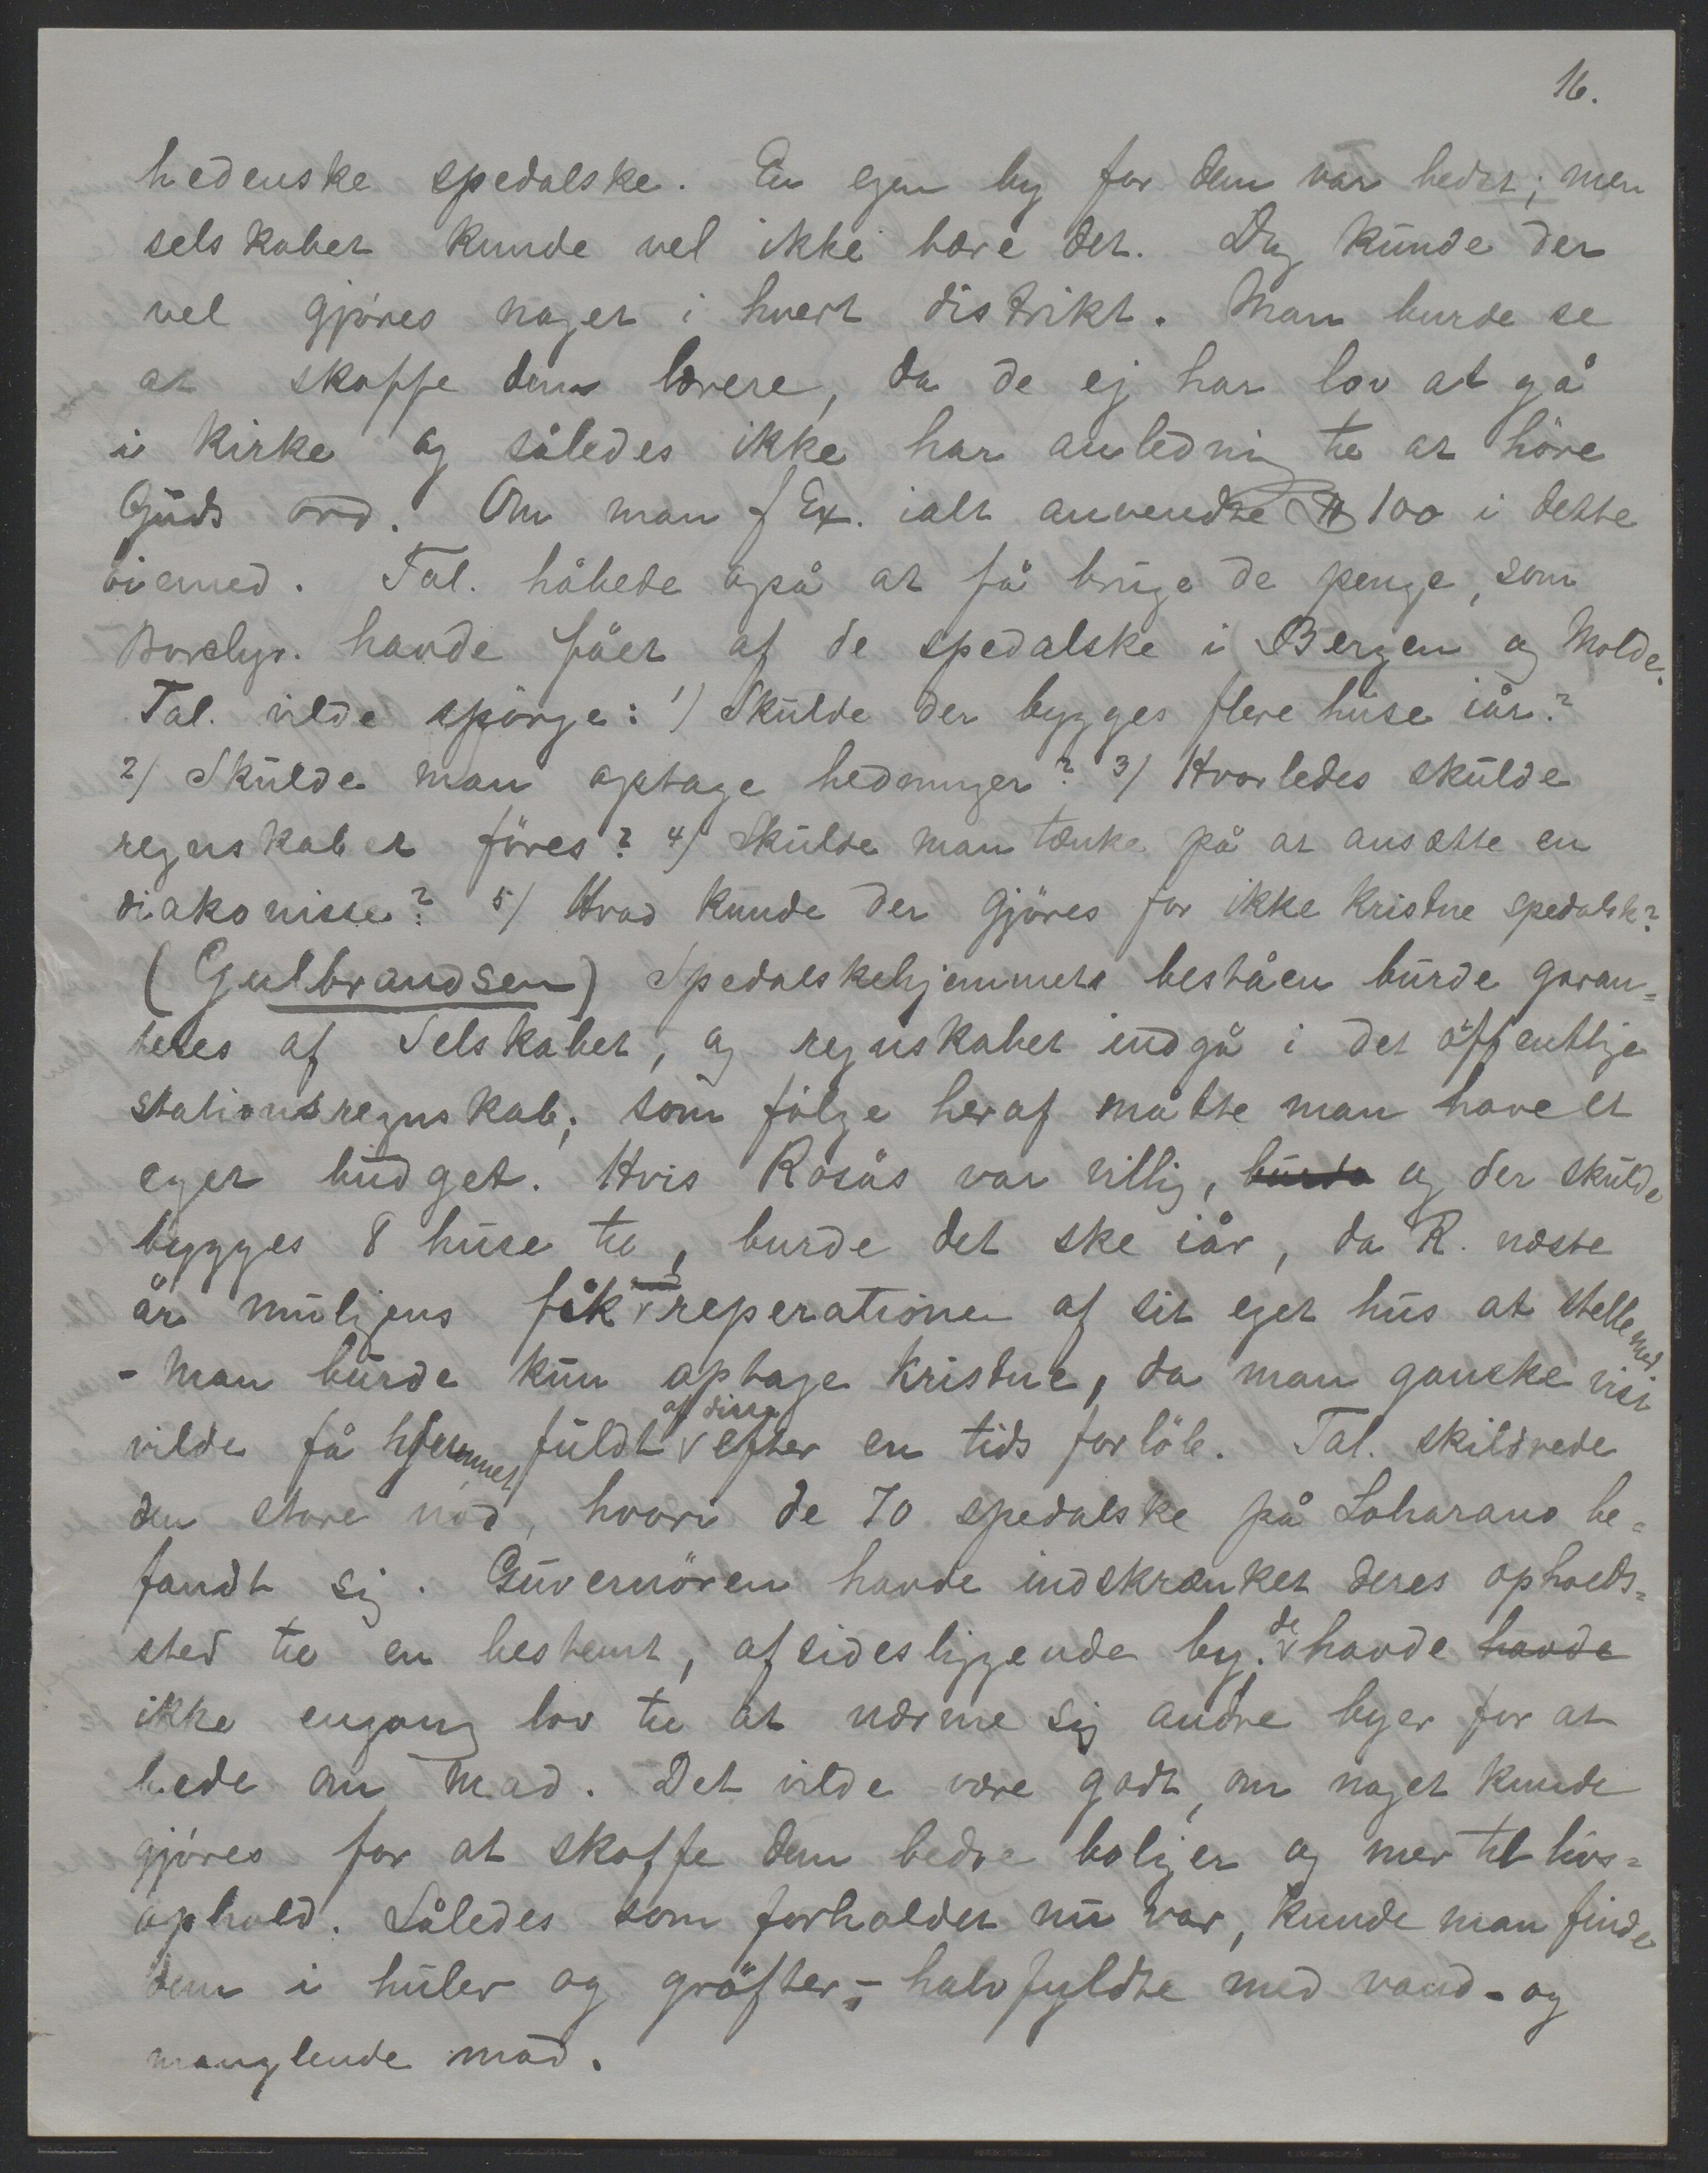 16.
hedenske spedalske. En egen by for dem var bedst; men
selskabet kunde vel ikke bære det. Dog kunde der
vel gjøres noget i hvert distrikt. Man burde se
at skaffe dem lærere, da de ej har lov at gå
i kirke og således ikke har anledning til at höre
Guds ord. Om man f Ex. ialt anvendte $ 100 i dette
øiemed. Tal. håbede også at få bruge de penge, som
Borchgr. havde fået af de spedalske i Bergen og Molde.
Tal. vilde spörge: 1) Skulde der bygges flere huse iår?
2) Skulde man optage hedninger? 3) Hvorledes skulde
regnskabet föres? 4) Skulde man tænke på at ansætte en
diakonisse? 5) Hvad kunde der gjöres for ikke kristne spedalsk?
(Gulbrandsen) Spedalskehjemmets beståen burde garan=
teres af Selskabet, og regnskabet indgå i det offentlige
stationsregnskab; som fölge heraf måtte man have et
eget budget. Hvis Rosås var villig, burde og der skulde
bygges 8 huse til, burde det ske iår, da R. næste
år muligens fik reperationen af sit eget hus at stelle med
- Man burde kun optage kristne, da man ganske vist
vilde få hjemmet fuldt af disse efter en tids forlöb. Tal. skildrede
den store nöd, hvori de 70 spedalske på Loharano be=
fandt sig. Guvernören havde indskrænket deres opholds=
sted til en bestemt, afsidesliggende by. de havde havde
ikke engang lov til at nærme sig andre byer for at
bede om mad. Det vilde være godt, om noget kunde
gjöres for at skaffe dem bedre boliger og mer til livs=
ophold. Således som forholdet nu var, kunde man finde
dem i huler og gröfter, - halvfyldte med vand - og
manglende mad.